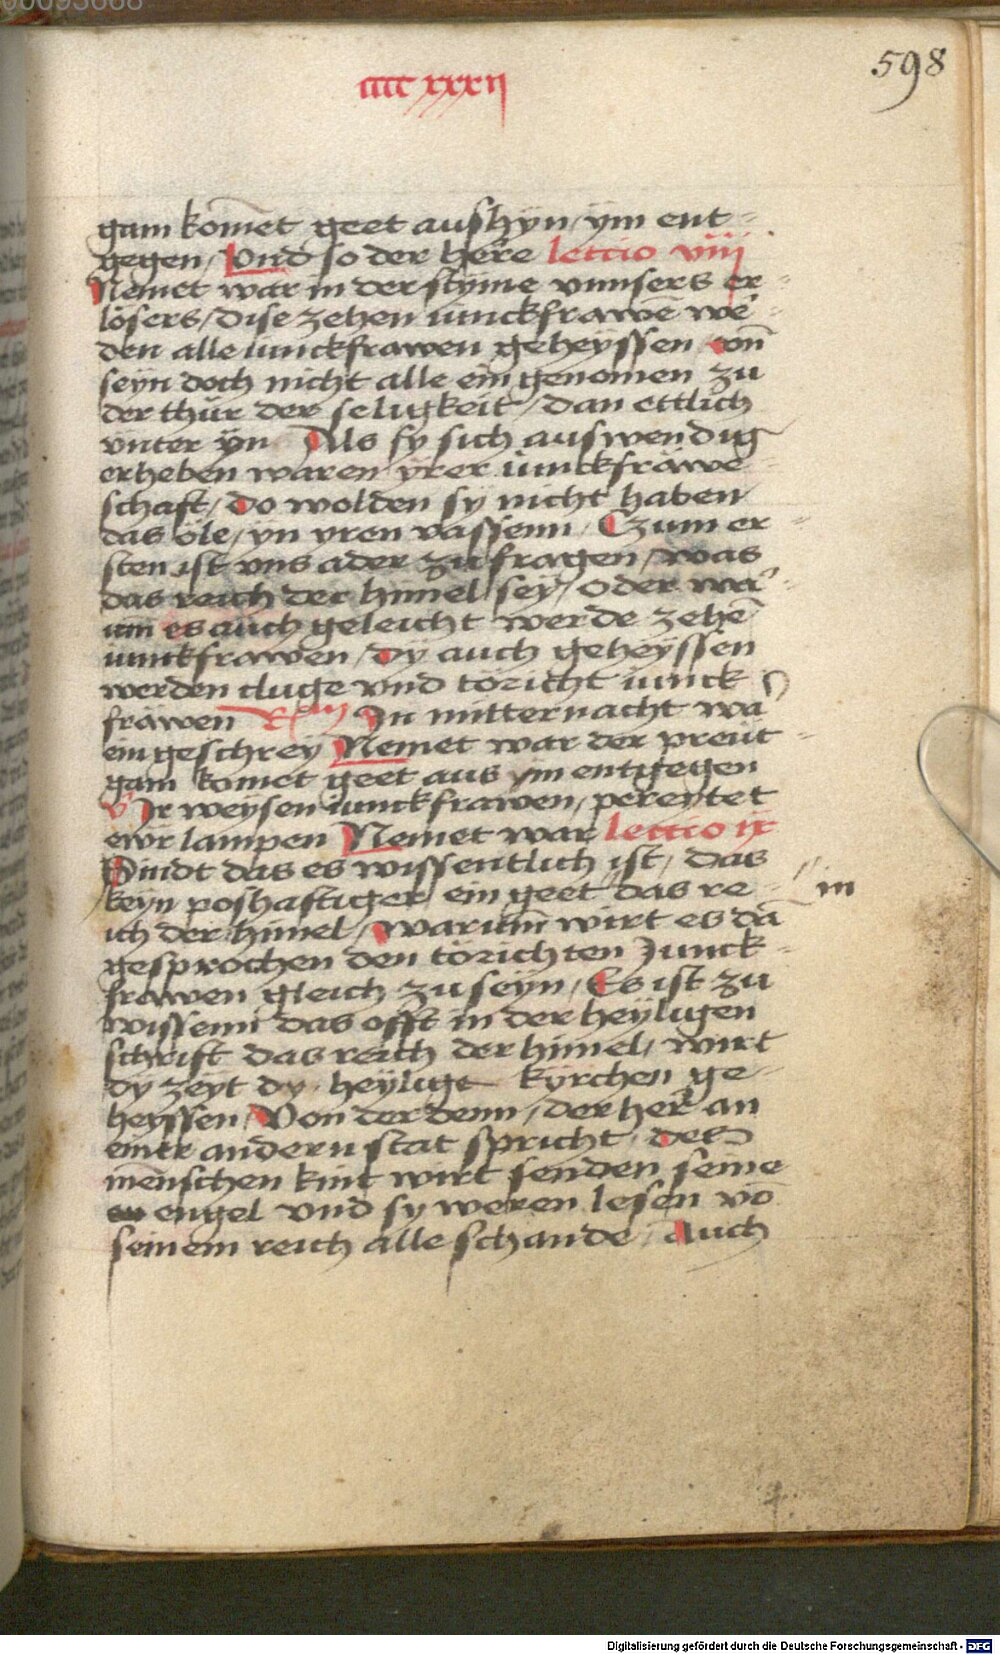 00093668
cccc xxxij
598
gam kom̄et geet aushyn / ym ent=
gegen / Vnd so der here lectio viij
Nemet war in der styme vnnsers er=
lösers / dise zehen iunckfrawē we=
den alle iunckfrawen geheyssen von̄
seyn doch nicht alle ein genomen zu
der thür der seligkeit / dan ettlich
vnter yn Als sy sich auswendig
erheben waren yrer iunckfräwe=
schaft / do wolden sy nicht haben
das öle / yn yren vassenn / Czum er=
sten ist vns ader zu fragen / was
das reich der himel sey / oder wa=
um es auch geleicht werde zehē
iunckfrawen / dy auch geheyssen
werden cluge vnd töricht iunck
fräwen In mitternacht wa
ein geschrey Nemet war der preüt=
gam komet geet aus ym entgegen
v Ir weysen iunckfrawen / pereytet
ewr lampen Nemet war lectio ix
Sindt das es wissentlich ist / das
keyn poshaftiger ein geet das re= in
ich der himel / warum̄ wirt es dā
gesprochen den törichten Junck=
frawen gleich zu seyn / Es ist zu
wissenn das offt in der heyligen
schrift das reich der himel / wirt
dy zeyt dy heylige kyrchen ge=
heyssen / Von der denn / der her an
einer andern stat spricht / des
menschen kint wirt senden seine
engel vnd sy weren lesen vō
seinem reich alle schande / Auch
Digitalisierung gefördert durch die Deutsche Forschungsgemeinschaft - DFG